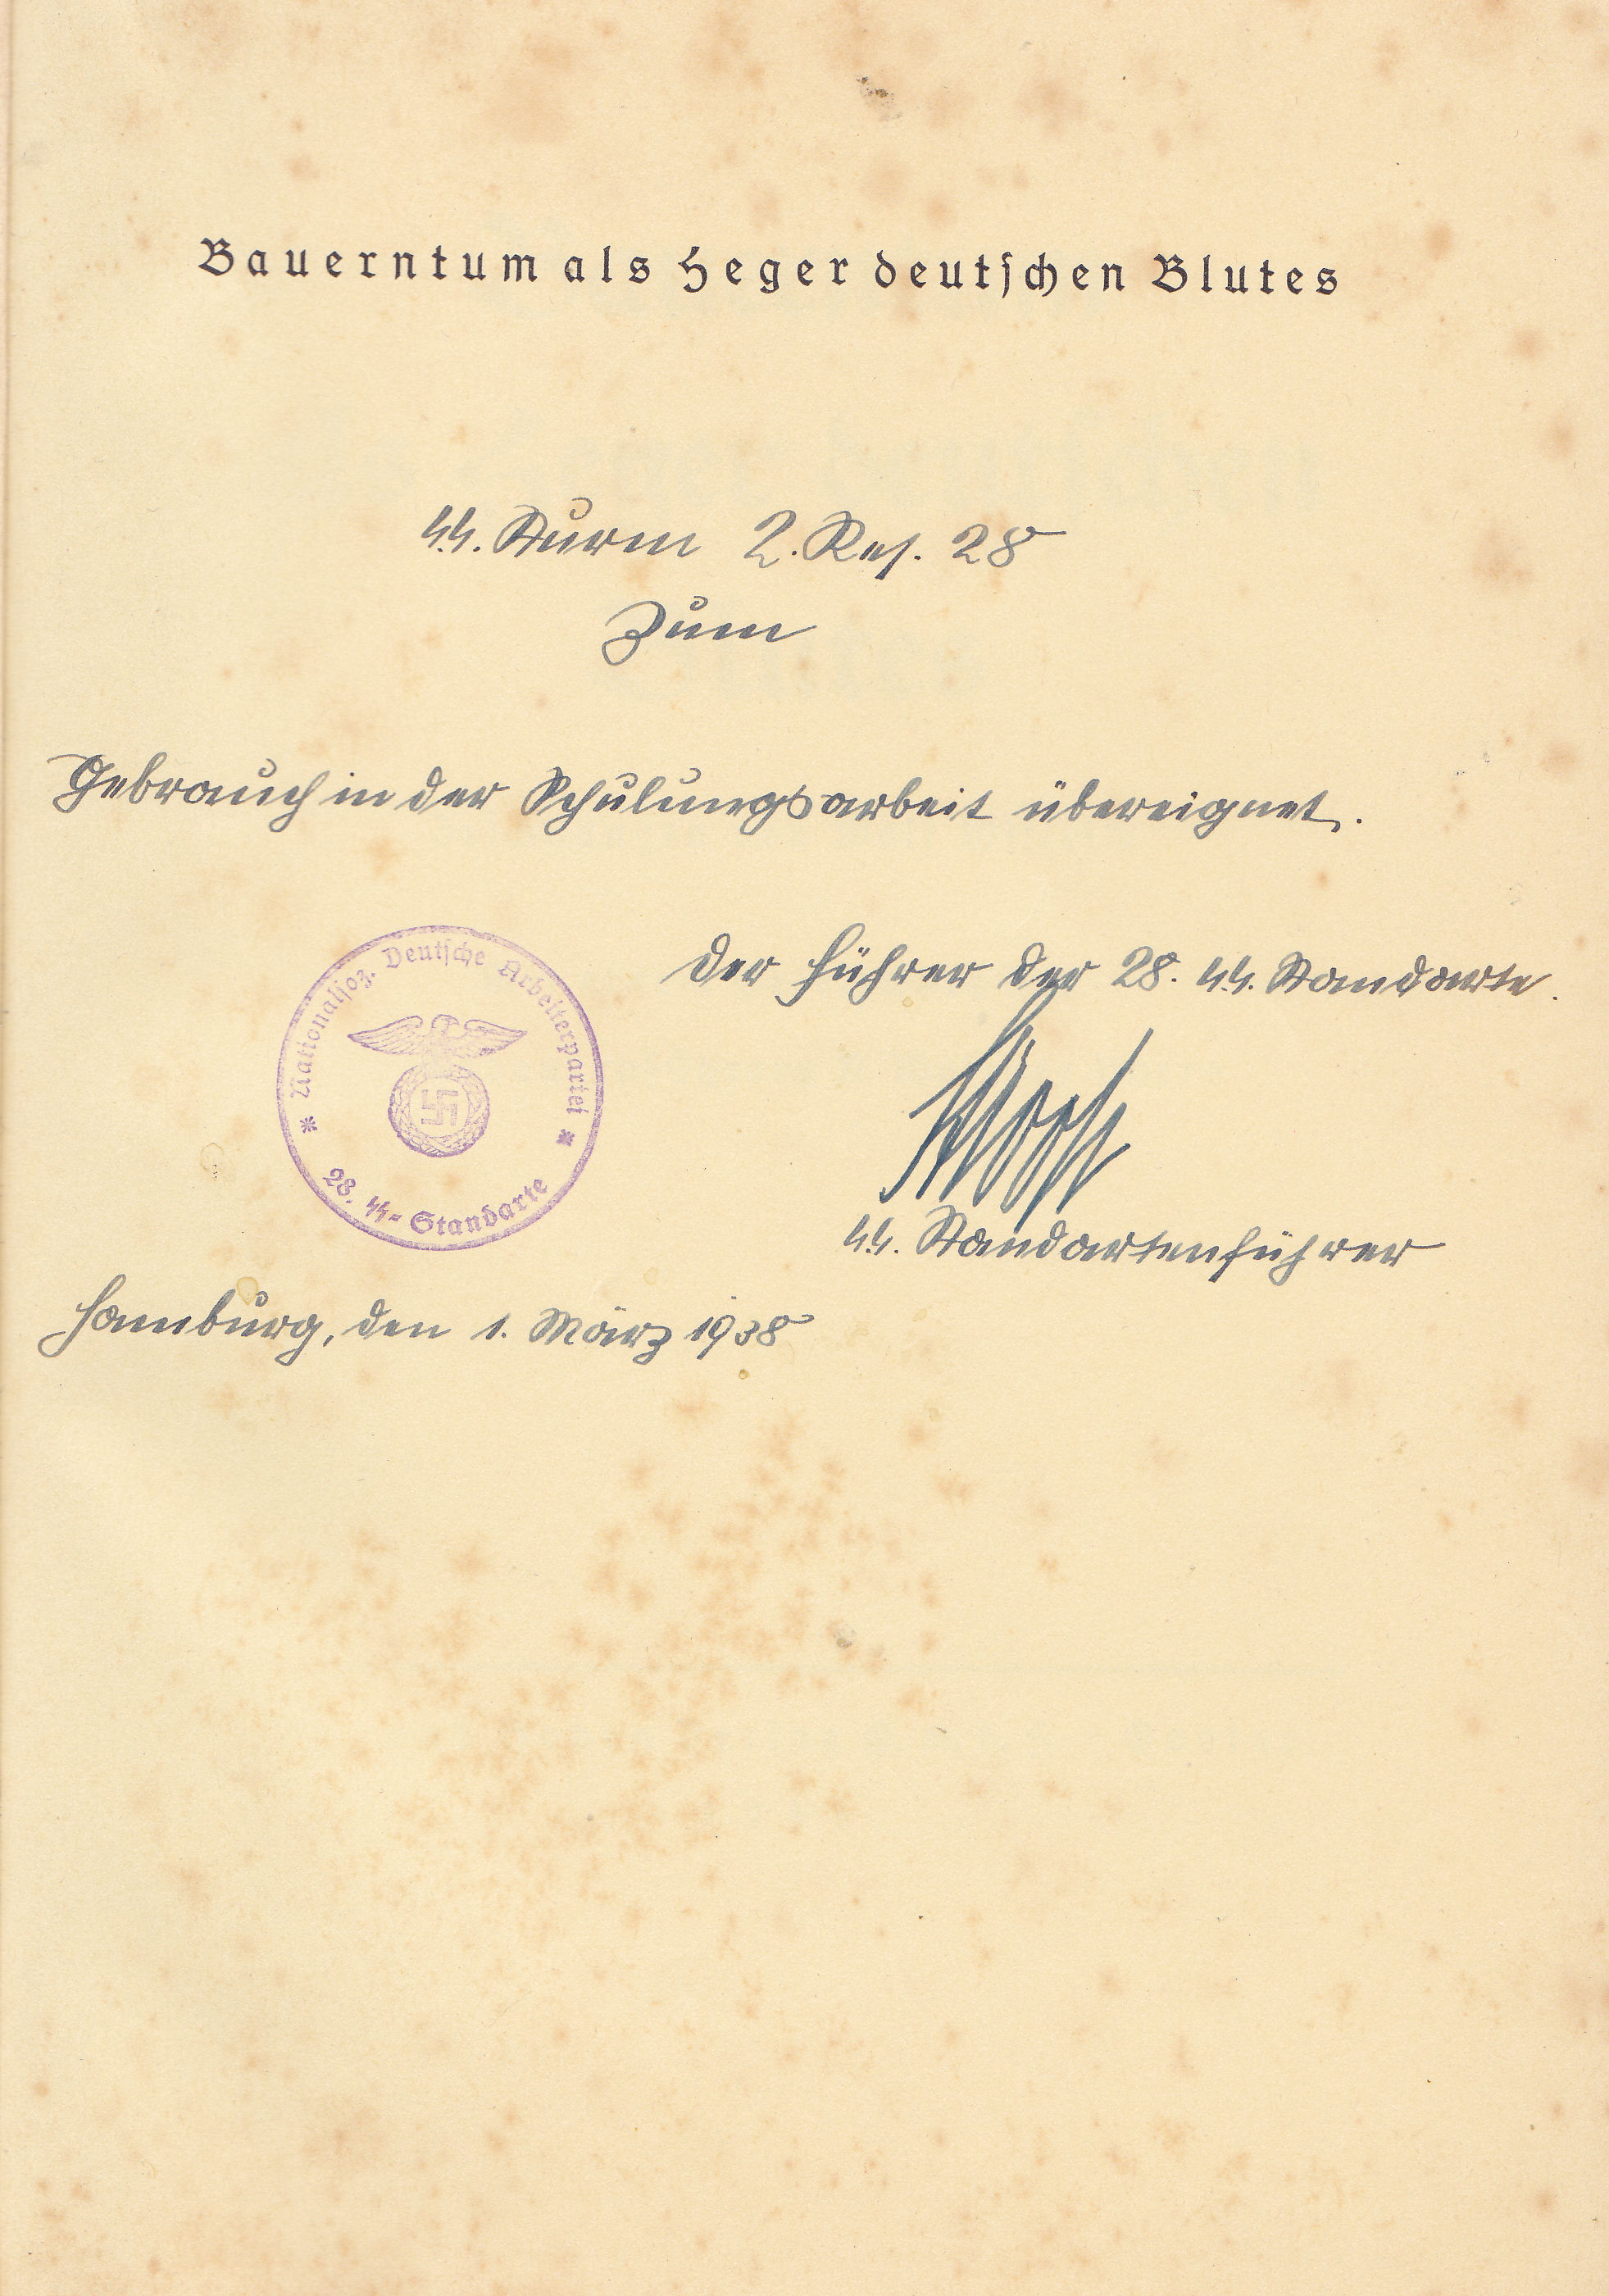 Bauerntum als Heger deutschen Blutes
SS. Sturm 2. Res. 28
Zum
Gebrauch in der Schulungsarbeit übereignet.
Der Führer der 28. SS. Standarte.
* Nationalsoz. Deutsche Arbeiterpartei *
28. SS-Standarte
SS. Standartenführer
Hamburg, den 1. März 1938